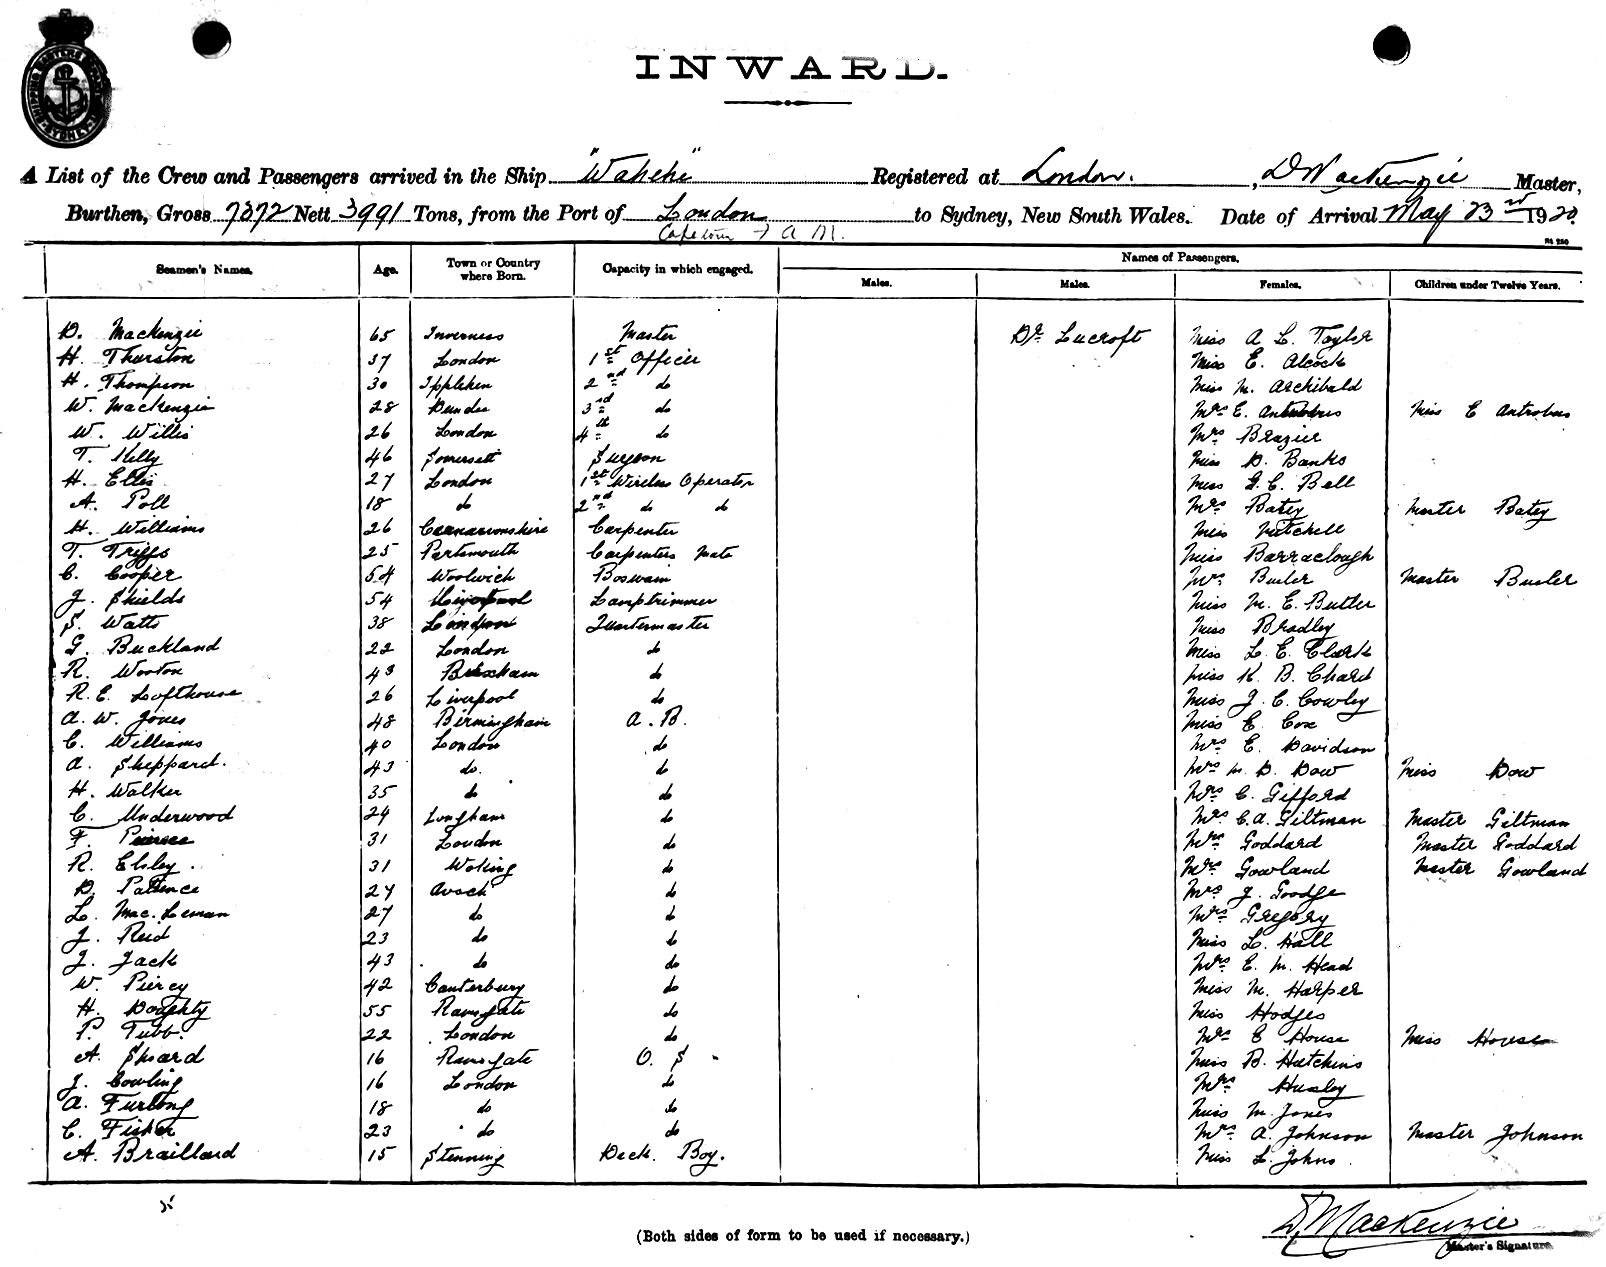 SHIPPING MASTERS OFFICE SYDNEY
INWARD.
A List of the Crew and Passengers arrived in the Ship "Waheke" Registered at London. , D Mackenzie Master,
Burthen, Gross 7372 Nett 3991 Tons, from the Port of London to Sydney, New South Wales. Date of Arrival May 23rd 1920.
Capetown F A M.
Names of Passengers.
Seamen's Names. Age. Town or Country where Born. Capacity in which engaged. Males. Males. Females. Children under Twelve Years.
D. Mackenzie 65 Inverness Master Dr Lucroft Miss A L. Taylor
H. Thurston 37 London 1st Officer Miss E. Alcock
H. Thompson 30 Ippleken 2nd do Miss M. Archibald
W. Mackenzie 28 Dundee 3rd do Mrs E. Antrobus Miss E Antrobus
W. Willis 26 London 4th do Mrs Brazier
T. Kelly 46 Somersett Surgeon Miss D. Banks
H. Ellis 27 London 1st Wireless Operator Miss G. E. Bell
A. Poll 18 do 2nd do do Mrs Batey Master Batey
H. Williams 26 Carnarvonshire Carpenter Miss Mitchell
T. Triggs 25 Portsmouth Carpenters Mate Miss Barraclough
C. Cooper 54 Woolwich Boswain Mrs Busler Master Busler
J. Shields 54 Liverpool Lamptrimmer Miss M. E. Butler
S. Watts 38 London Quartermaster Miss Bradley
G. Buckland 22 London do Miss L. E. Clark
R. Wooton 43 Brixham do Miss K. B. Chard
R. E. Lofthouse 26 Liverpool do Miss J. C. Cowley
A. W. Jones 48 Birmingham A. B. Miss E. Cox
C. Williams 40 London do Mrs E. Davidson
A. Sheppard. 43 do. do Mrs M. D. Dow Miss Dow
H. Walker 35 do do Mrs C. Gifford
C. Underwood 24 Longham do Mrs C. A. Giltman Master Giltman
F. Pearce 31 London do Mrs Goddard Master Goddard
R. Elsley 31 Woking do Mrs Gowland Master Gowland
D. Patience 27 Avoch do Mrs J. Goodge
L. Mac. Leman 27 do do Mrs Gregory
J. Reid 23 do do Miss L. Hall
J. Jack 43 do do Mrs E. M. Head
W. Piercy 42 Canterbury do Miss M. Harper
H. Doughty 55 Ramsgate do Miss Hodges
P. Tubb. 22 London do Mrs E House Miss House
A. Sheard 16 Ramsgate O. S Miss B. Hutchins
J. Cowling 16 London do Mrs Huxley
A. Furlong 18 do do Miss M. Jones
C. Fisher 23 do do Mrs A. Johnson Master Johnson
A. Braillard 15 Stenning Deck. Boy. Miss L. Johns.
(Both sides of form to be used if necessary.)
D. Mackenzie
Master's Signature.